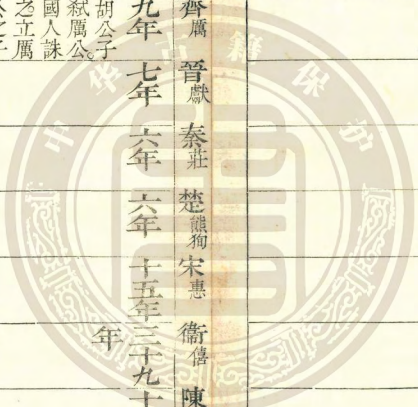 齊厲 晉獻 秦莊 楚熊徇 宋惠 衛僖 陳
九年 七年 六年 六年 十五年 三十九年 十
胡公子
弑厲公。
國人誅
之立厲
公之子
中华古籍保护